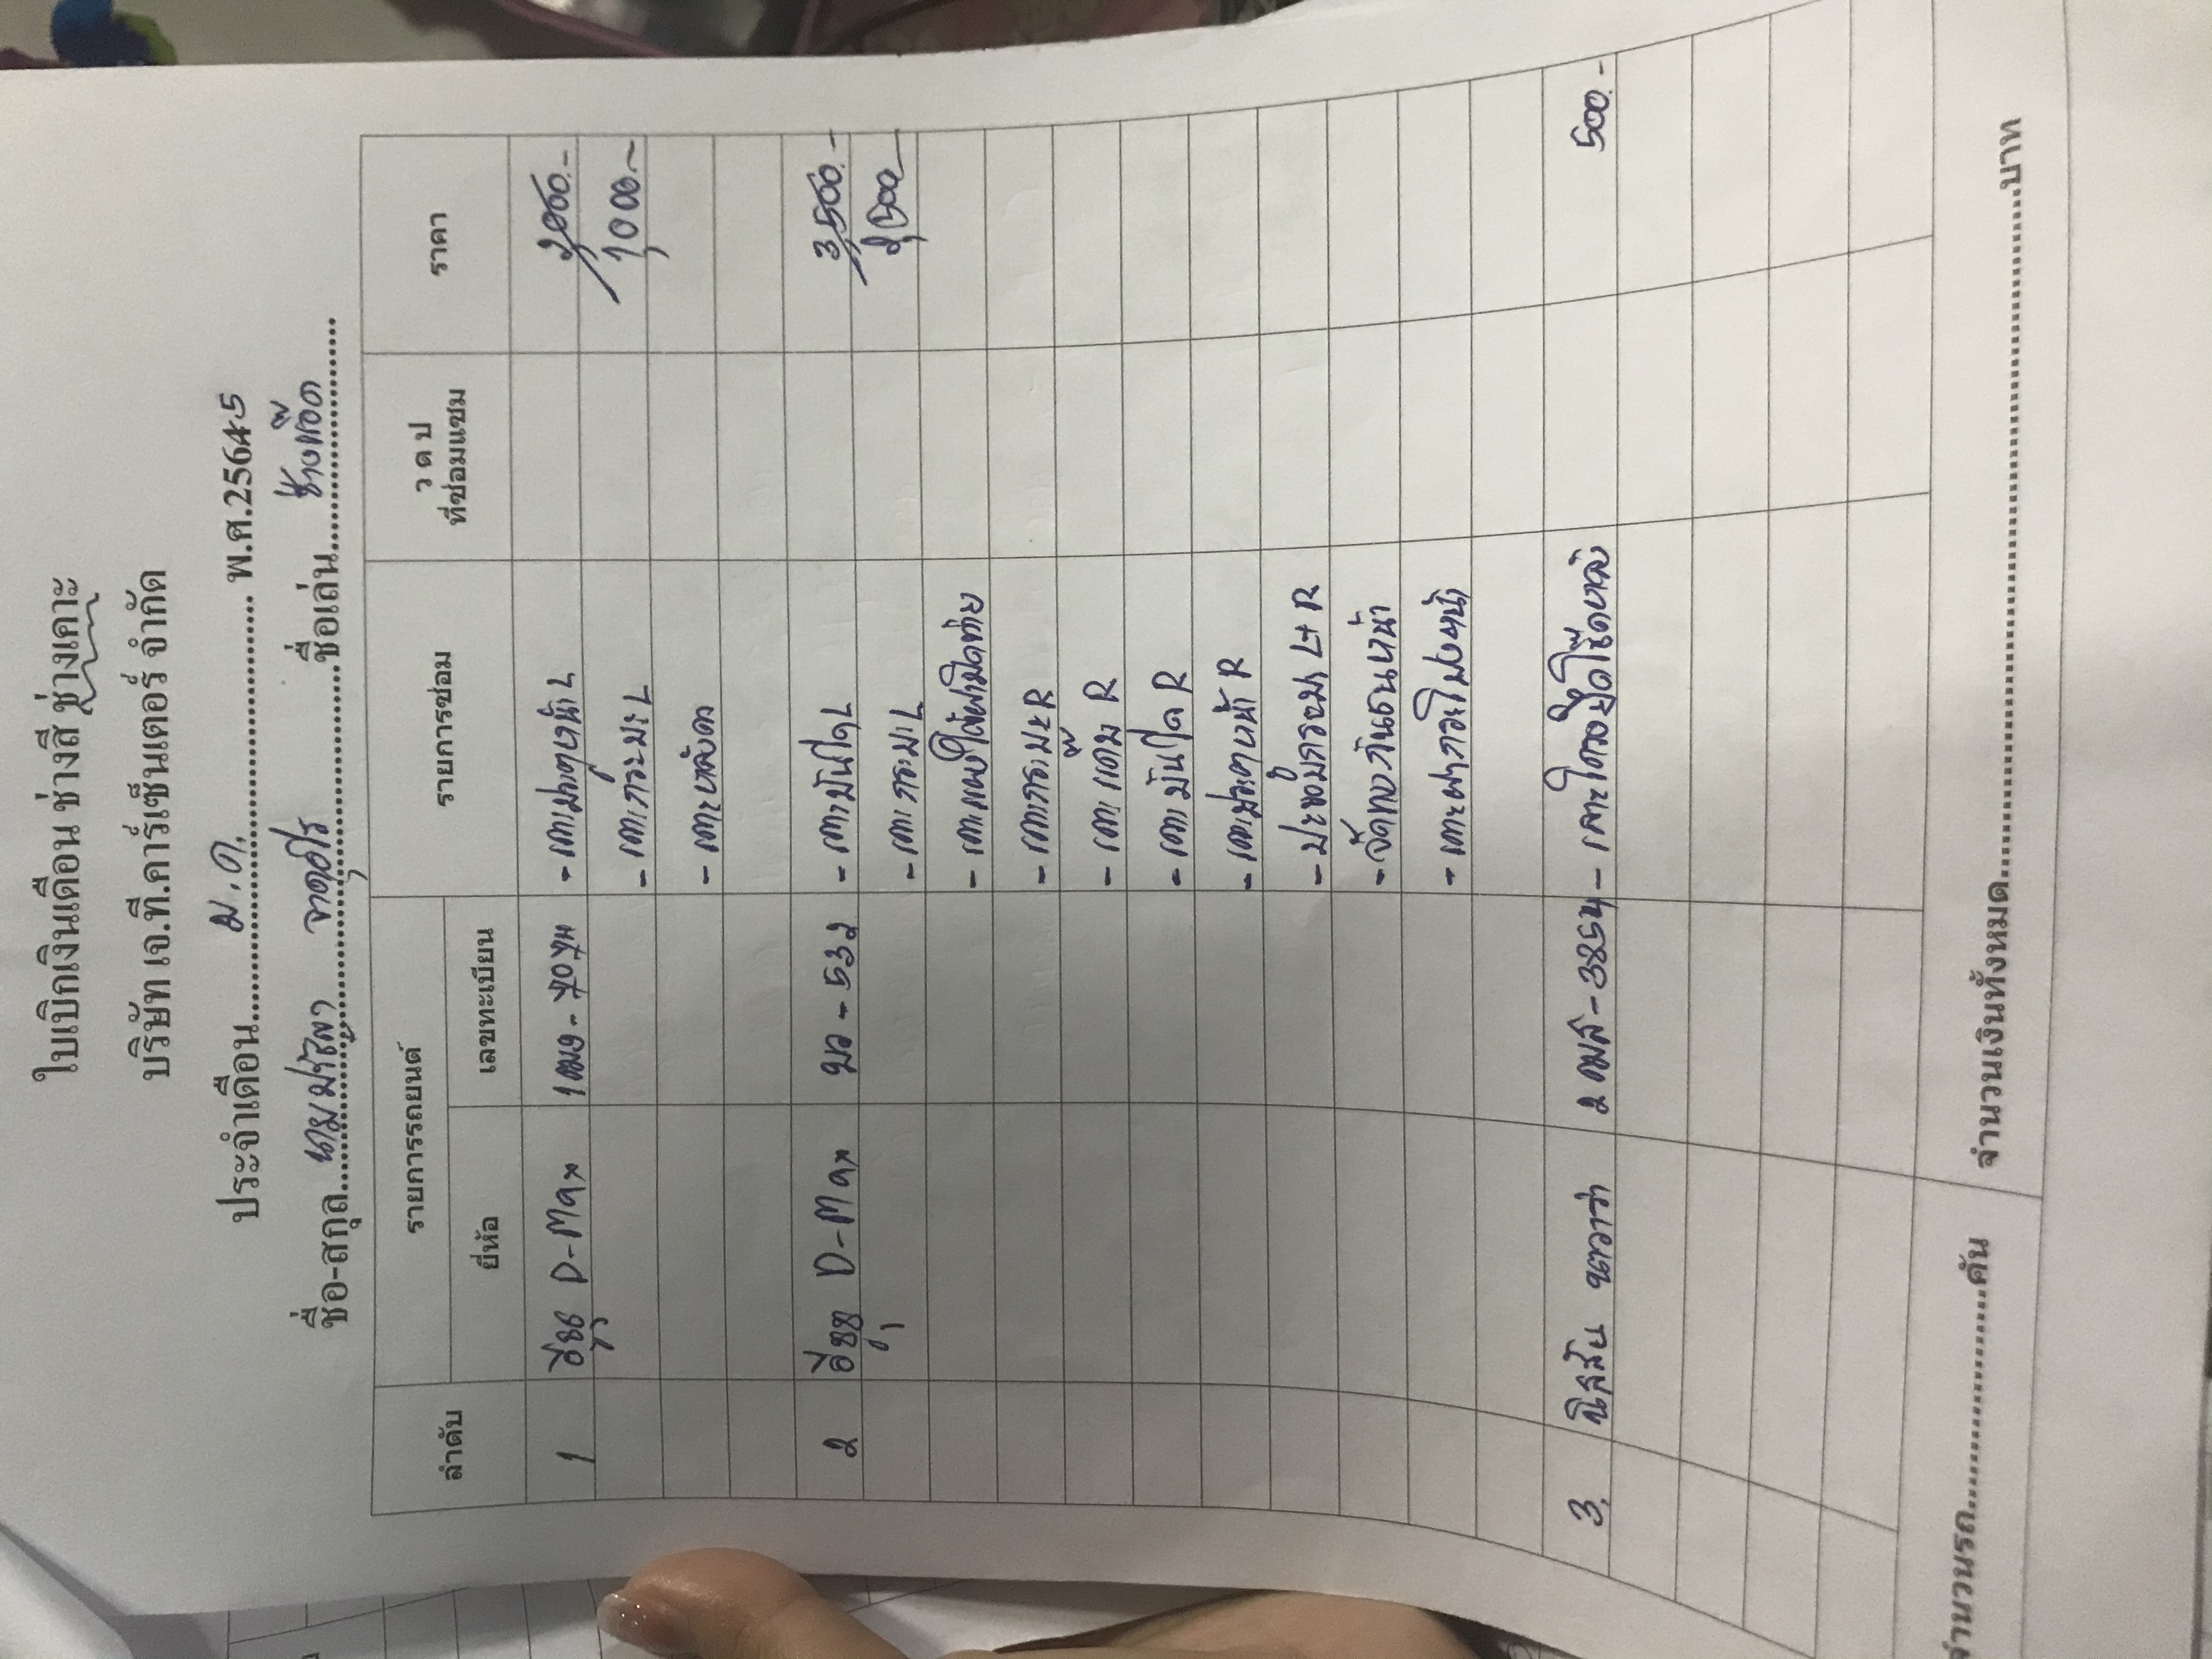 ใบเบิกเงินเดือน ช่างสี ช่างเคาะ
บริษัท เจ.ที.คาร์เซ็นเตอร์ จำกัด
ประจำเดือน ม.ค. พ.ศ.2564-5
ชื่อ-สกุล นาย ชื่อเล่น ช่างแอ๊ด
ลำดับ รายการรถยนต์ รายการซ่อม ว ด ป ที่ซ่อมแซม ราคา
ยี่ห้อ เลขทะเบียน
1 อีซูซุ D-Max - เคาะประตูหน้า L 2,000.-
- เคาะกระบะ L 1,000.-
- เคาะหลังคา
2 อีซูซุ D-Max บว - 532 - เคาะบันได L 3,500.-
- เคาะกระบะ L 2,500
- เคาะแคบ
- เคาะกระบะ R
- เคาะแค๊บ R
- เคาะบันได R
- เคาะประตูหน้า R
- ปะขอบกระจก L+R
- จัดทรงกันชนหน้า
- เคาะฝากระโปรงหน้า
3. นิสสัน นาวาร่า 2 ฒส - 3854 - เคาะ 500.-
จำนวนรถ คัน จำนวนเงินทั้งหมด บาท